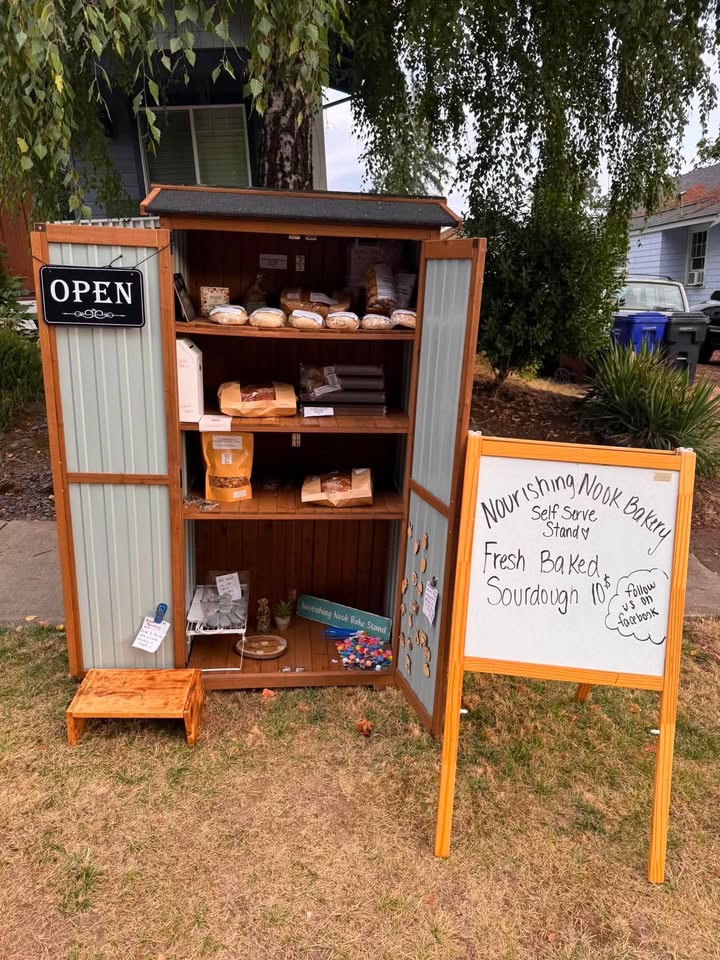 OPEN
Nourishing Nook Bakery
Self Serve
Stand
Fresh Baked
Sourdough 10$
follow
us on
facebook
Nourishing Nook Bake Stand